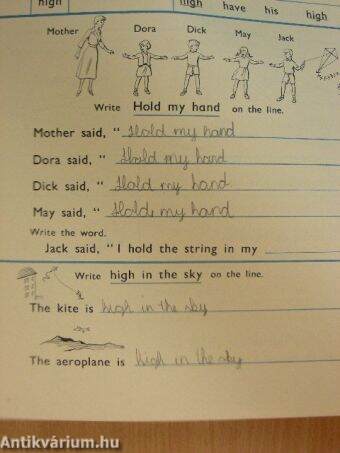 high high have his high
Mother Dora Dick May Jack
Write Hold my hand on the line.
Mother said, " Hold my hand
Dora said, " Hold my hand
Dick said, " Hold my hand
May said, " Hold my hand
Write the word.
Jack said, "I hold the string in my
Write high in the sky on the line.
The kite is high in the sky
The aeroplane is high in the sky
Antikvárium.hu